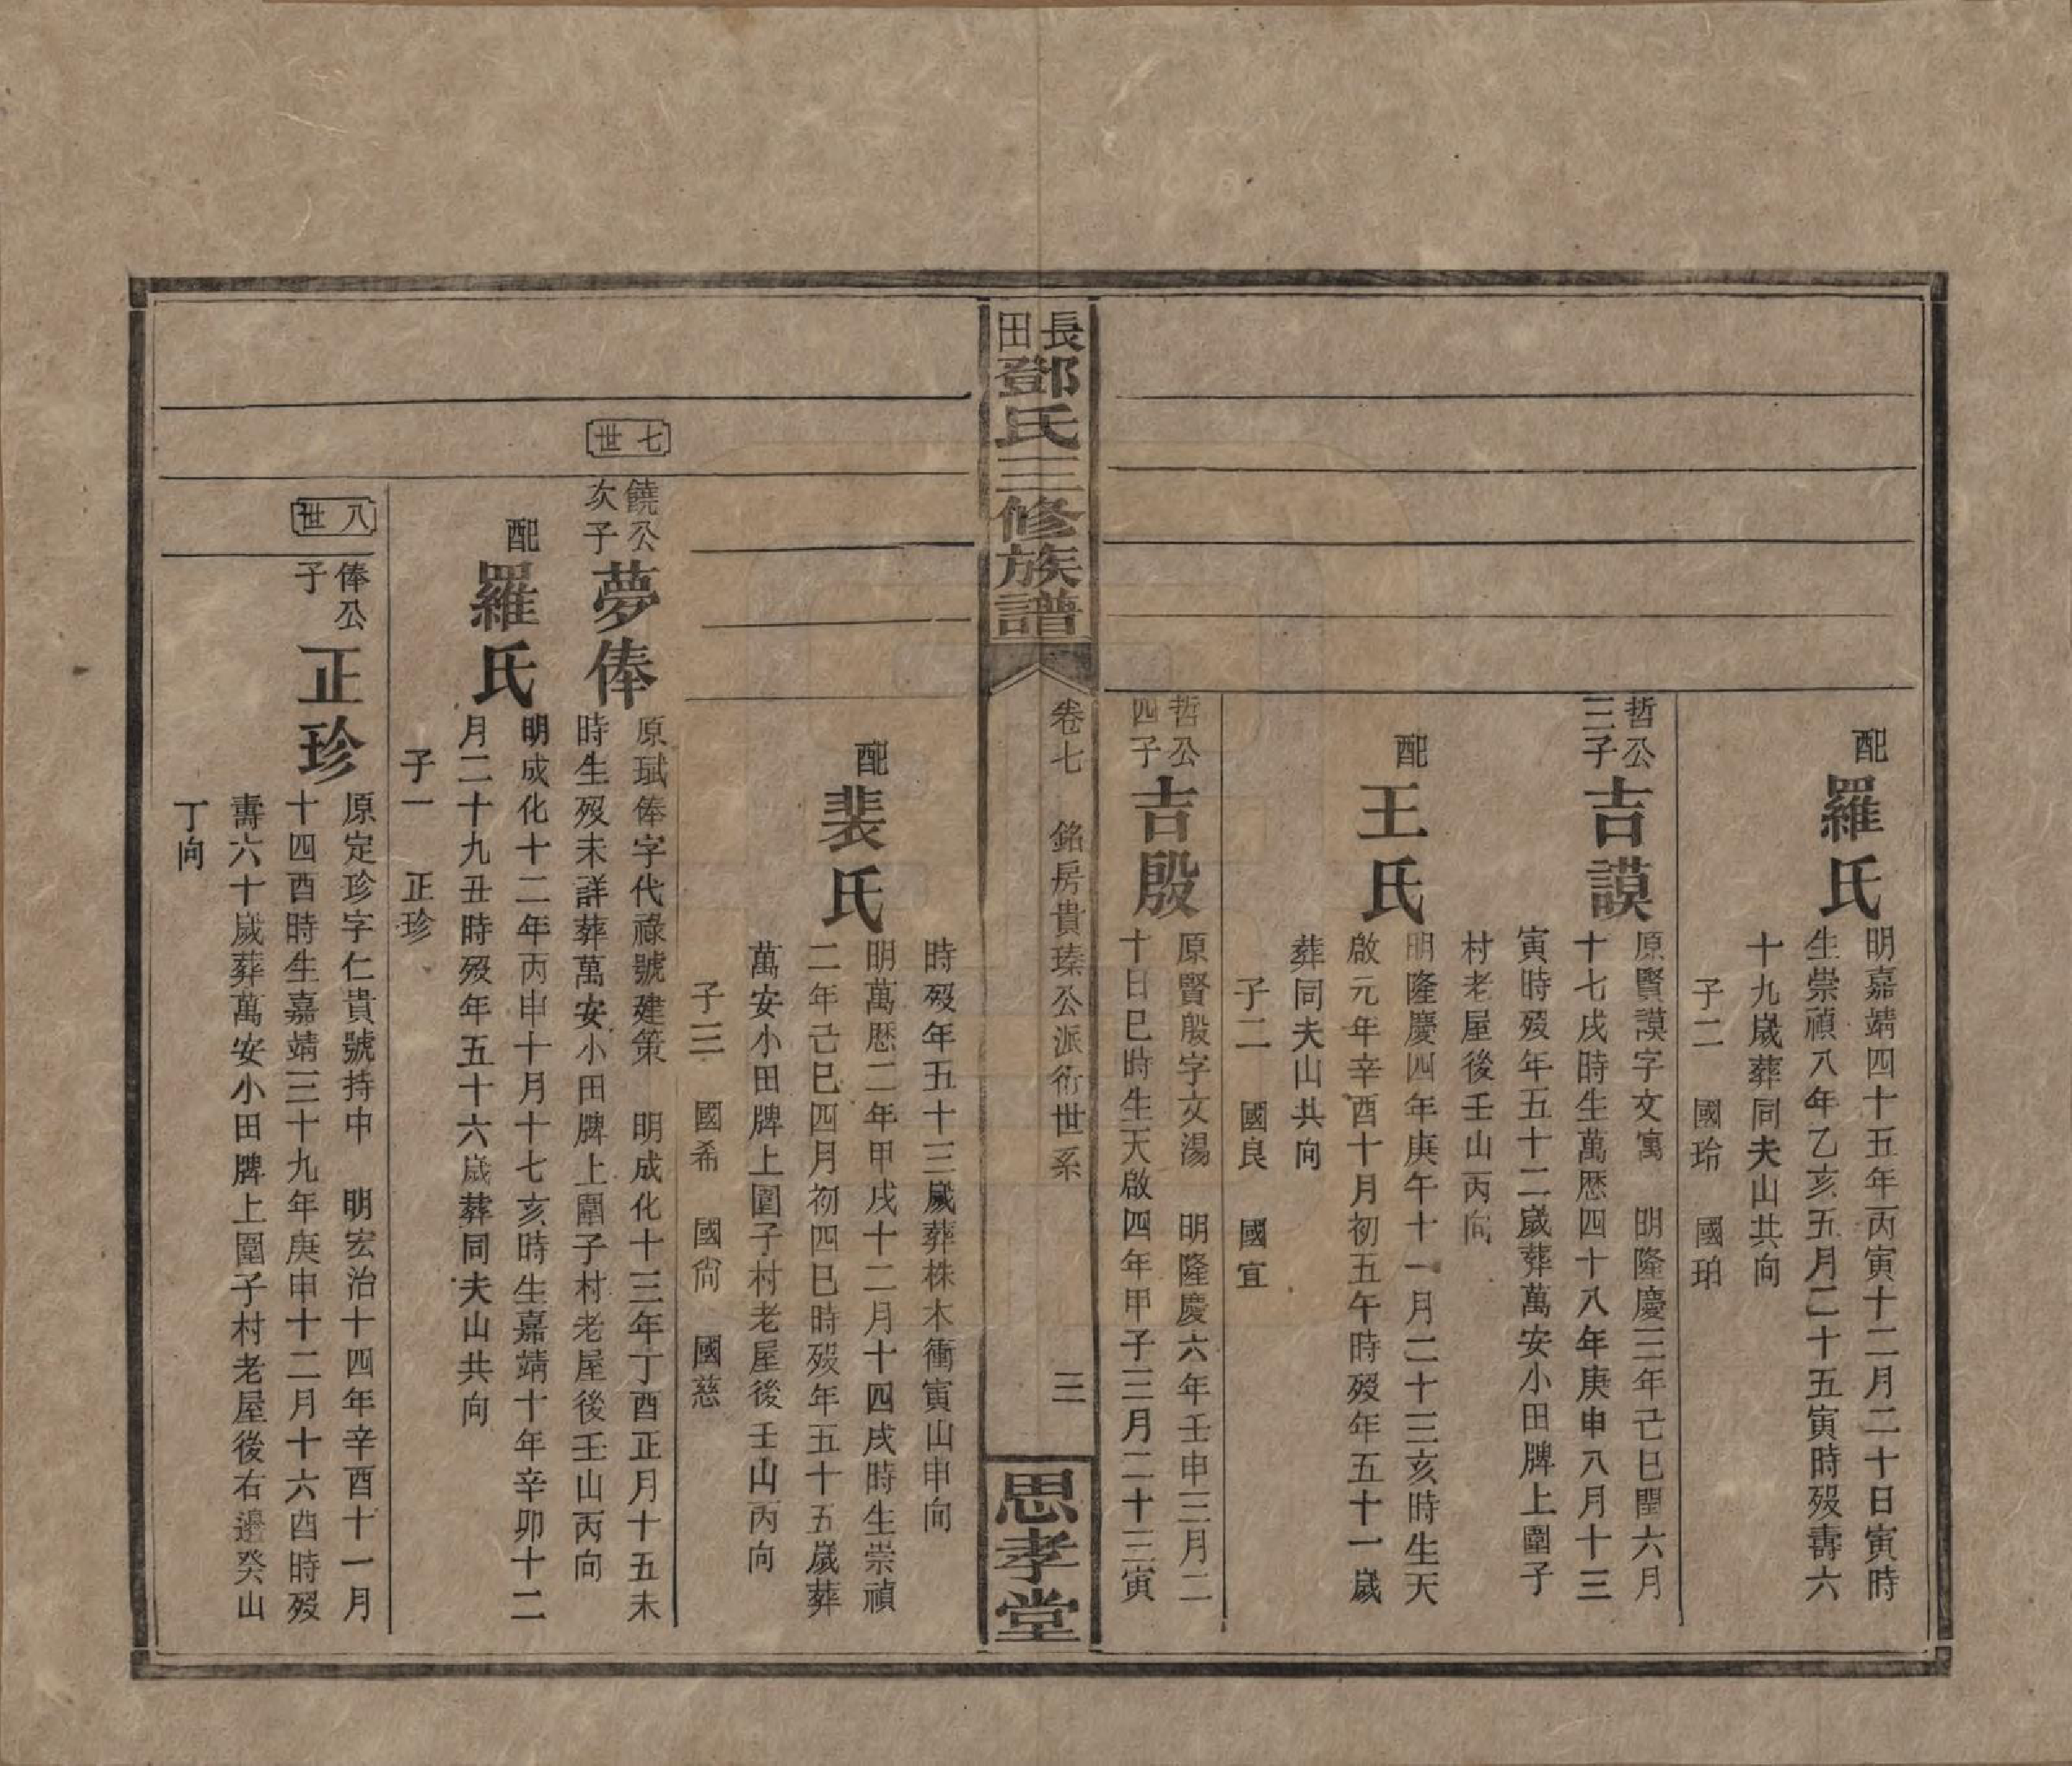 配
羅氏
明嘉靖四十五年丙寅十二月二十日寅時
生崇禎八年乙亥五月二十五寅時殁壽六
十九歲葬同夫山共向
子二　國玲　國珀
哲公
三子
吉謨
原賢謨字文寓　明隆慶三年己巳閏六月
十七戌時生萬歷四十八年庚申八月十三
寅時殁年五十二歲葬萬安小田牌上圍子
村老屋後壬山丙向
配
王氏
明隆慶四年庚午十一月二十三亥時生天
啟元年辛酉十月初五午時殁年五十一歲
葬同夫山共向
子二　國良　國宜
哲公
四子
吉殷
原賢殷字文湯　明隆慶六年壬申三月二
十日巳時生天啟四年甲子三月二十三寅
長田
鄧氏三修族譜
卷七　銘房貴瑧公派衍世系
三
思孝堂
時殁年五十三歲葬株木衝寅山申向
配
裴氏
明萬歷二年甲戌十二月十四戌時生崇禎
二年己巳四月初四巳時殁年五十五歲葬
萬安小田牌上圍子村老屋後壬山丙向
子三　國希　國尙　國慈
七世
饒公
次子
夢俸
原珷俸字代祿號建策　明成化十三年丁酉正月十五未
時生殁未詳葬萬安小田牌上圍子村老屋後壬山丙向
配
羅氏
明成化十二年丙申十月十七亥時生嘉靖十年辛卯十二
月二十九丑時殁年五十六歲葬同夫山共向
子一　正珍
八世
俸公
子
正珍
原定珍字仁貴號持中　明宏治十四年辛酉十一月
十四酉時生嘉靖三十九年庚申十二月十六酉時殁
壽六十歲葬萬安小田牌上圍子村老屋後右邊癸山
丁向